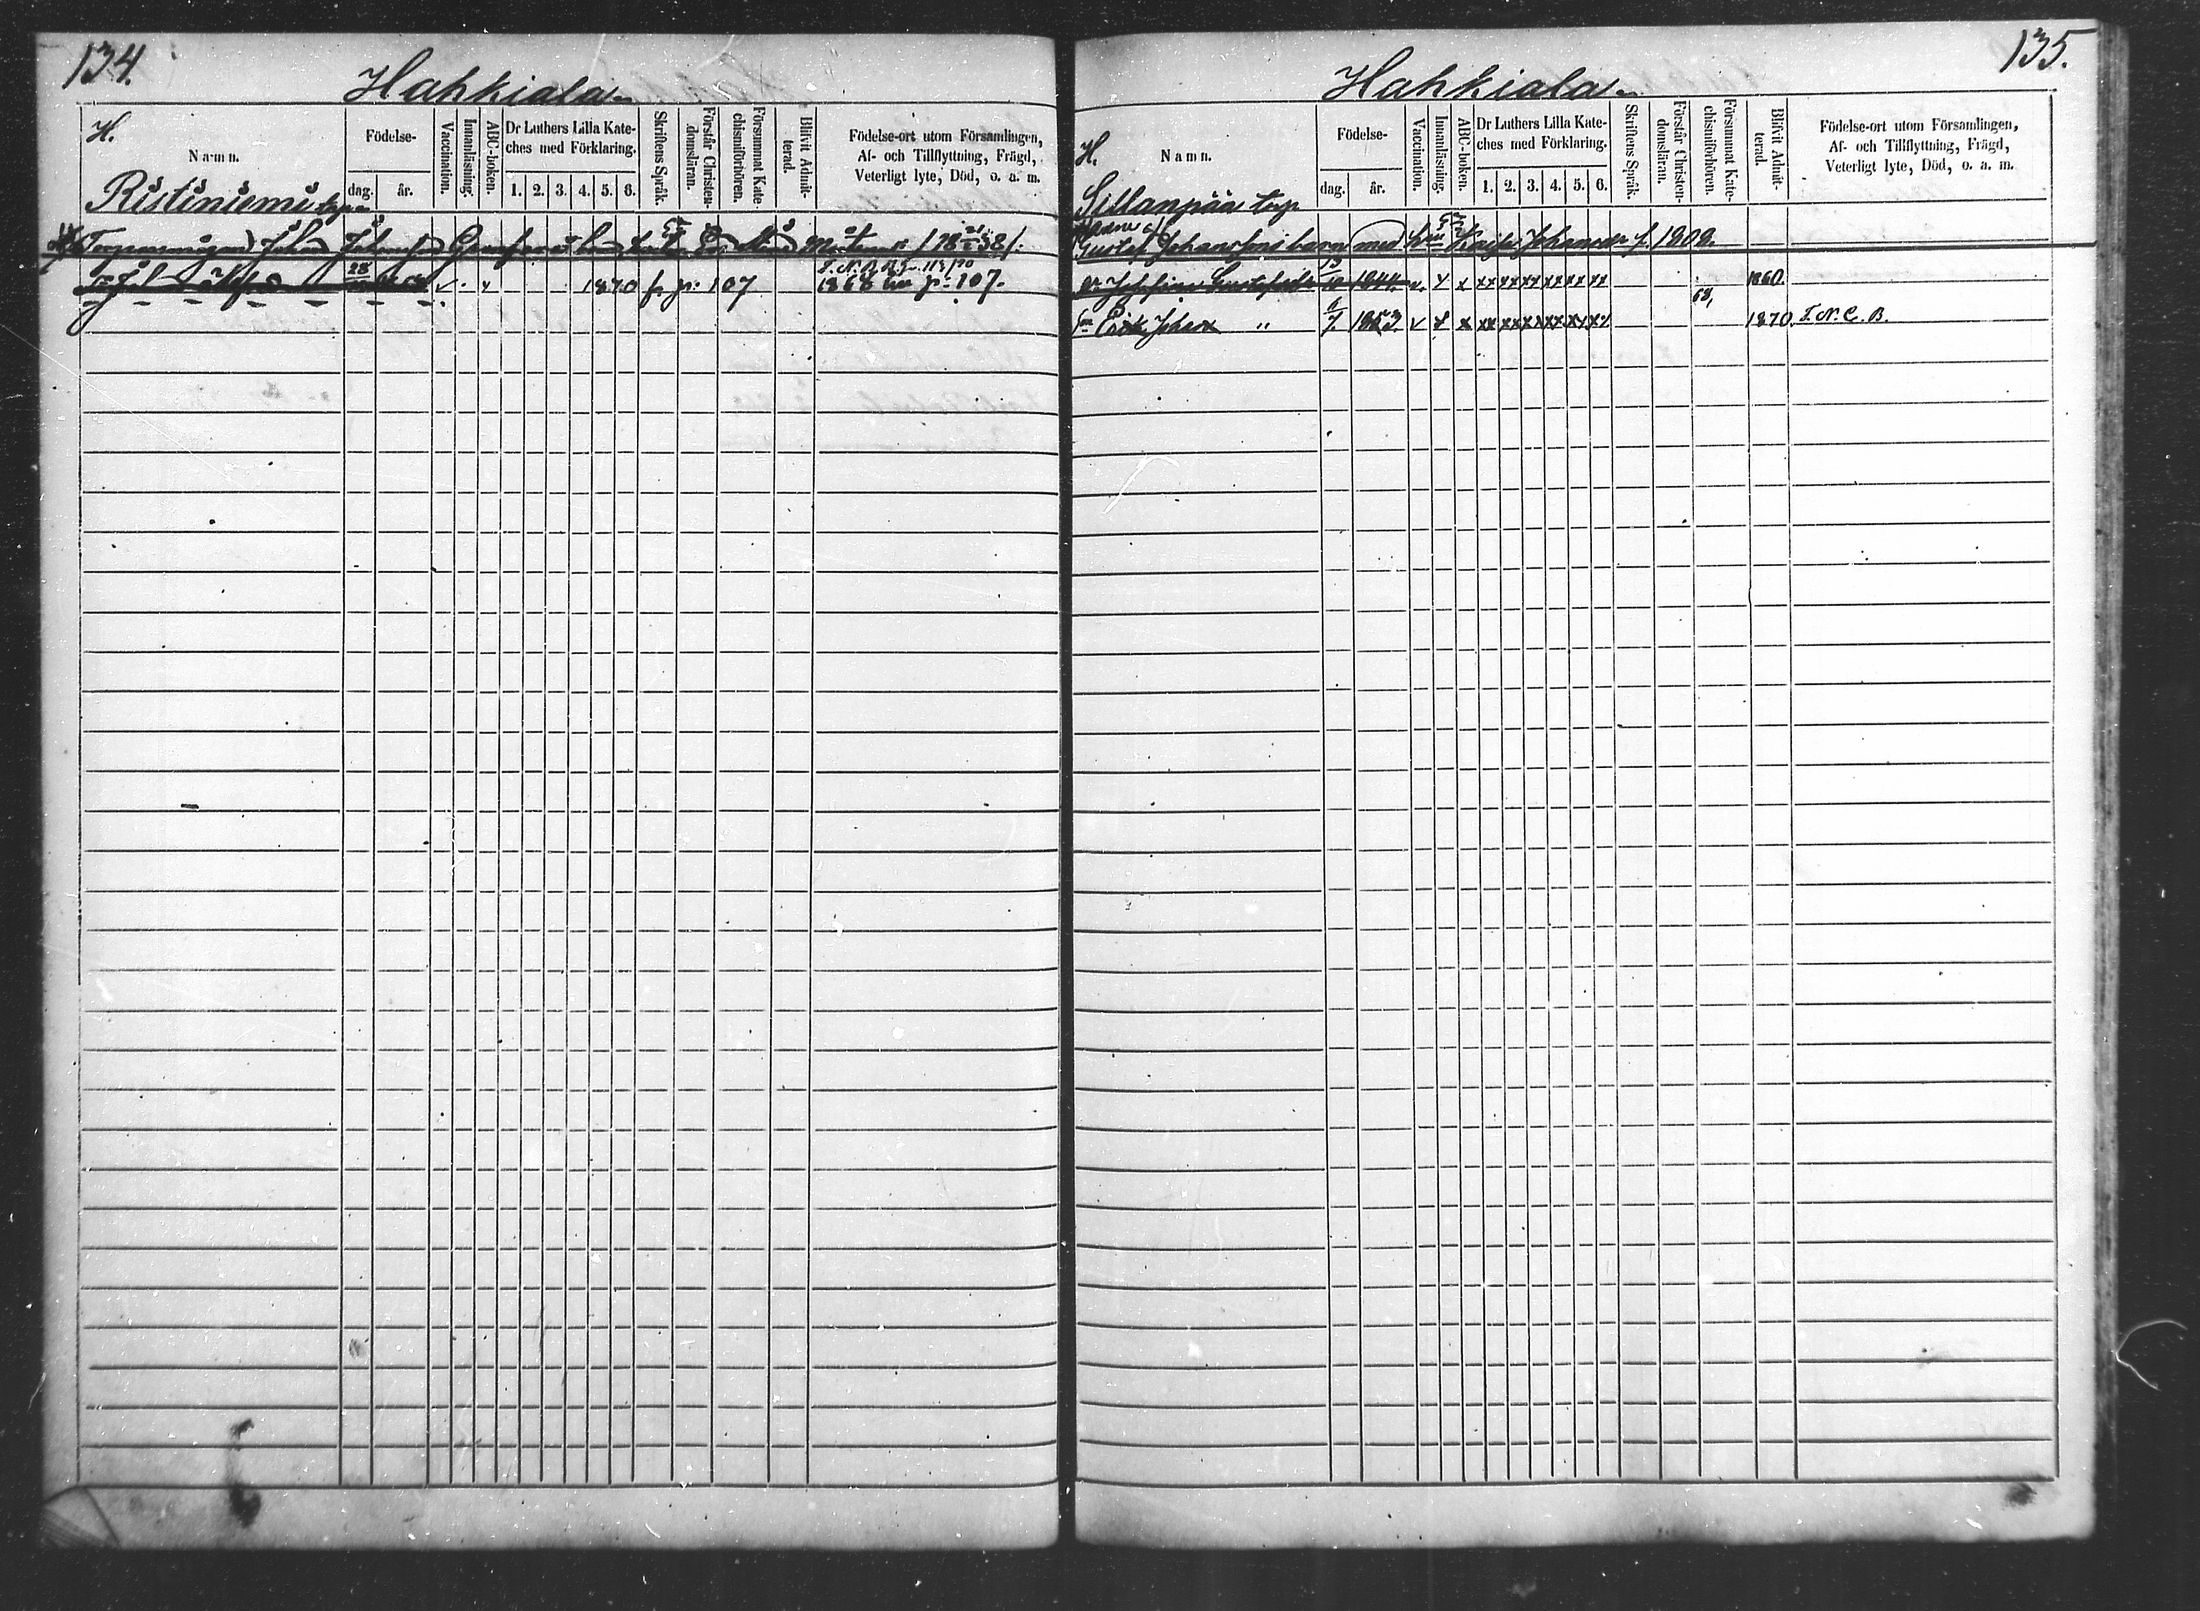 134.
Hahkiala
H.
Namn.
Födelse-
dag.
år.
Vaccination.
Innanläsning.
ABC-boken.
Dr Luthers Lilla Kate-
ches med Förklaring.
1. 2. 3. 4. 5. 6.
Skriftens Språk.
Förstår Christen-
domsläran.
Försummat Kate-
chismiförhören.
Blifvit Admit-
terad.
Födelse-ort utom Församlingen,
Af- och Tillflyttning, Frägd,
Veterligt lyte, Död, o. a. m.
Ristiniemi torp
Johan
28
1870 fr. p: 107
1868 p. 107.
135.
Hahkiala
H.
Namn.
Födelse-
dag.
år.
Vaccination.
Innanläsning.
ABC-boken.
Dr Luthers Lilla Kate-
ches med Förklaring.
1. 2. 3. 4. 5. 6.
Skriftens Språk.
Förstår Christen-
domsläran.
Försummat Kate-
chismiförhören.
Blifvit Admit-
terad.
Födelse-ort utom Församlingen,
Af- och Tillflyttning, Frägd,
Veterligt lyte, Död, o. a. m.
Sillanpää torp
Gustaf Johanssons barn med Kajsa Johansdr f. 1808.
Josefina Gustafsdr 1844 x x xx xx xx xx xx xx 1860.
Erick Johan " 1853 x xx xx xx xx xx xx 68, 1870 F. N. C. B.